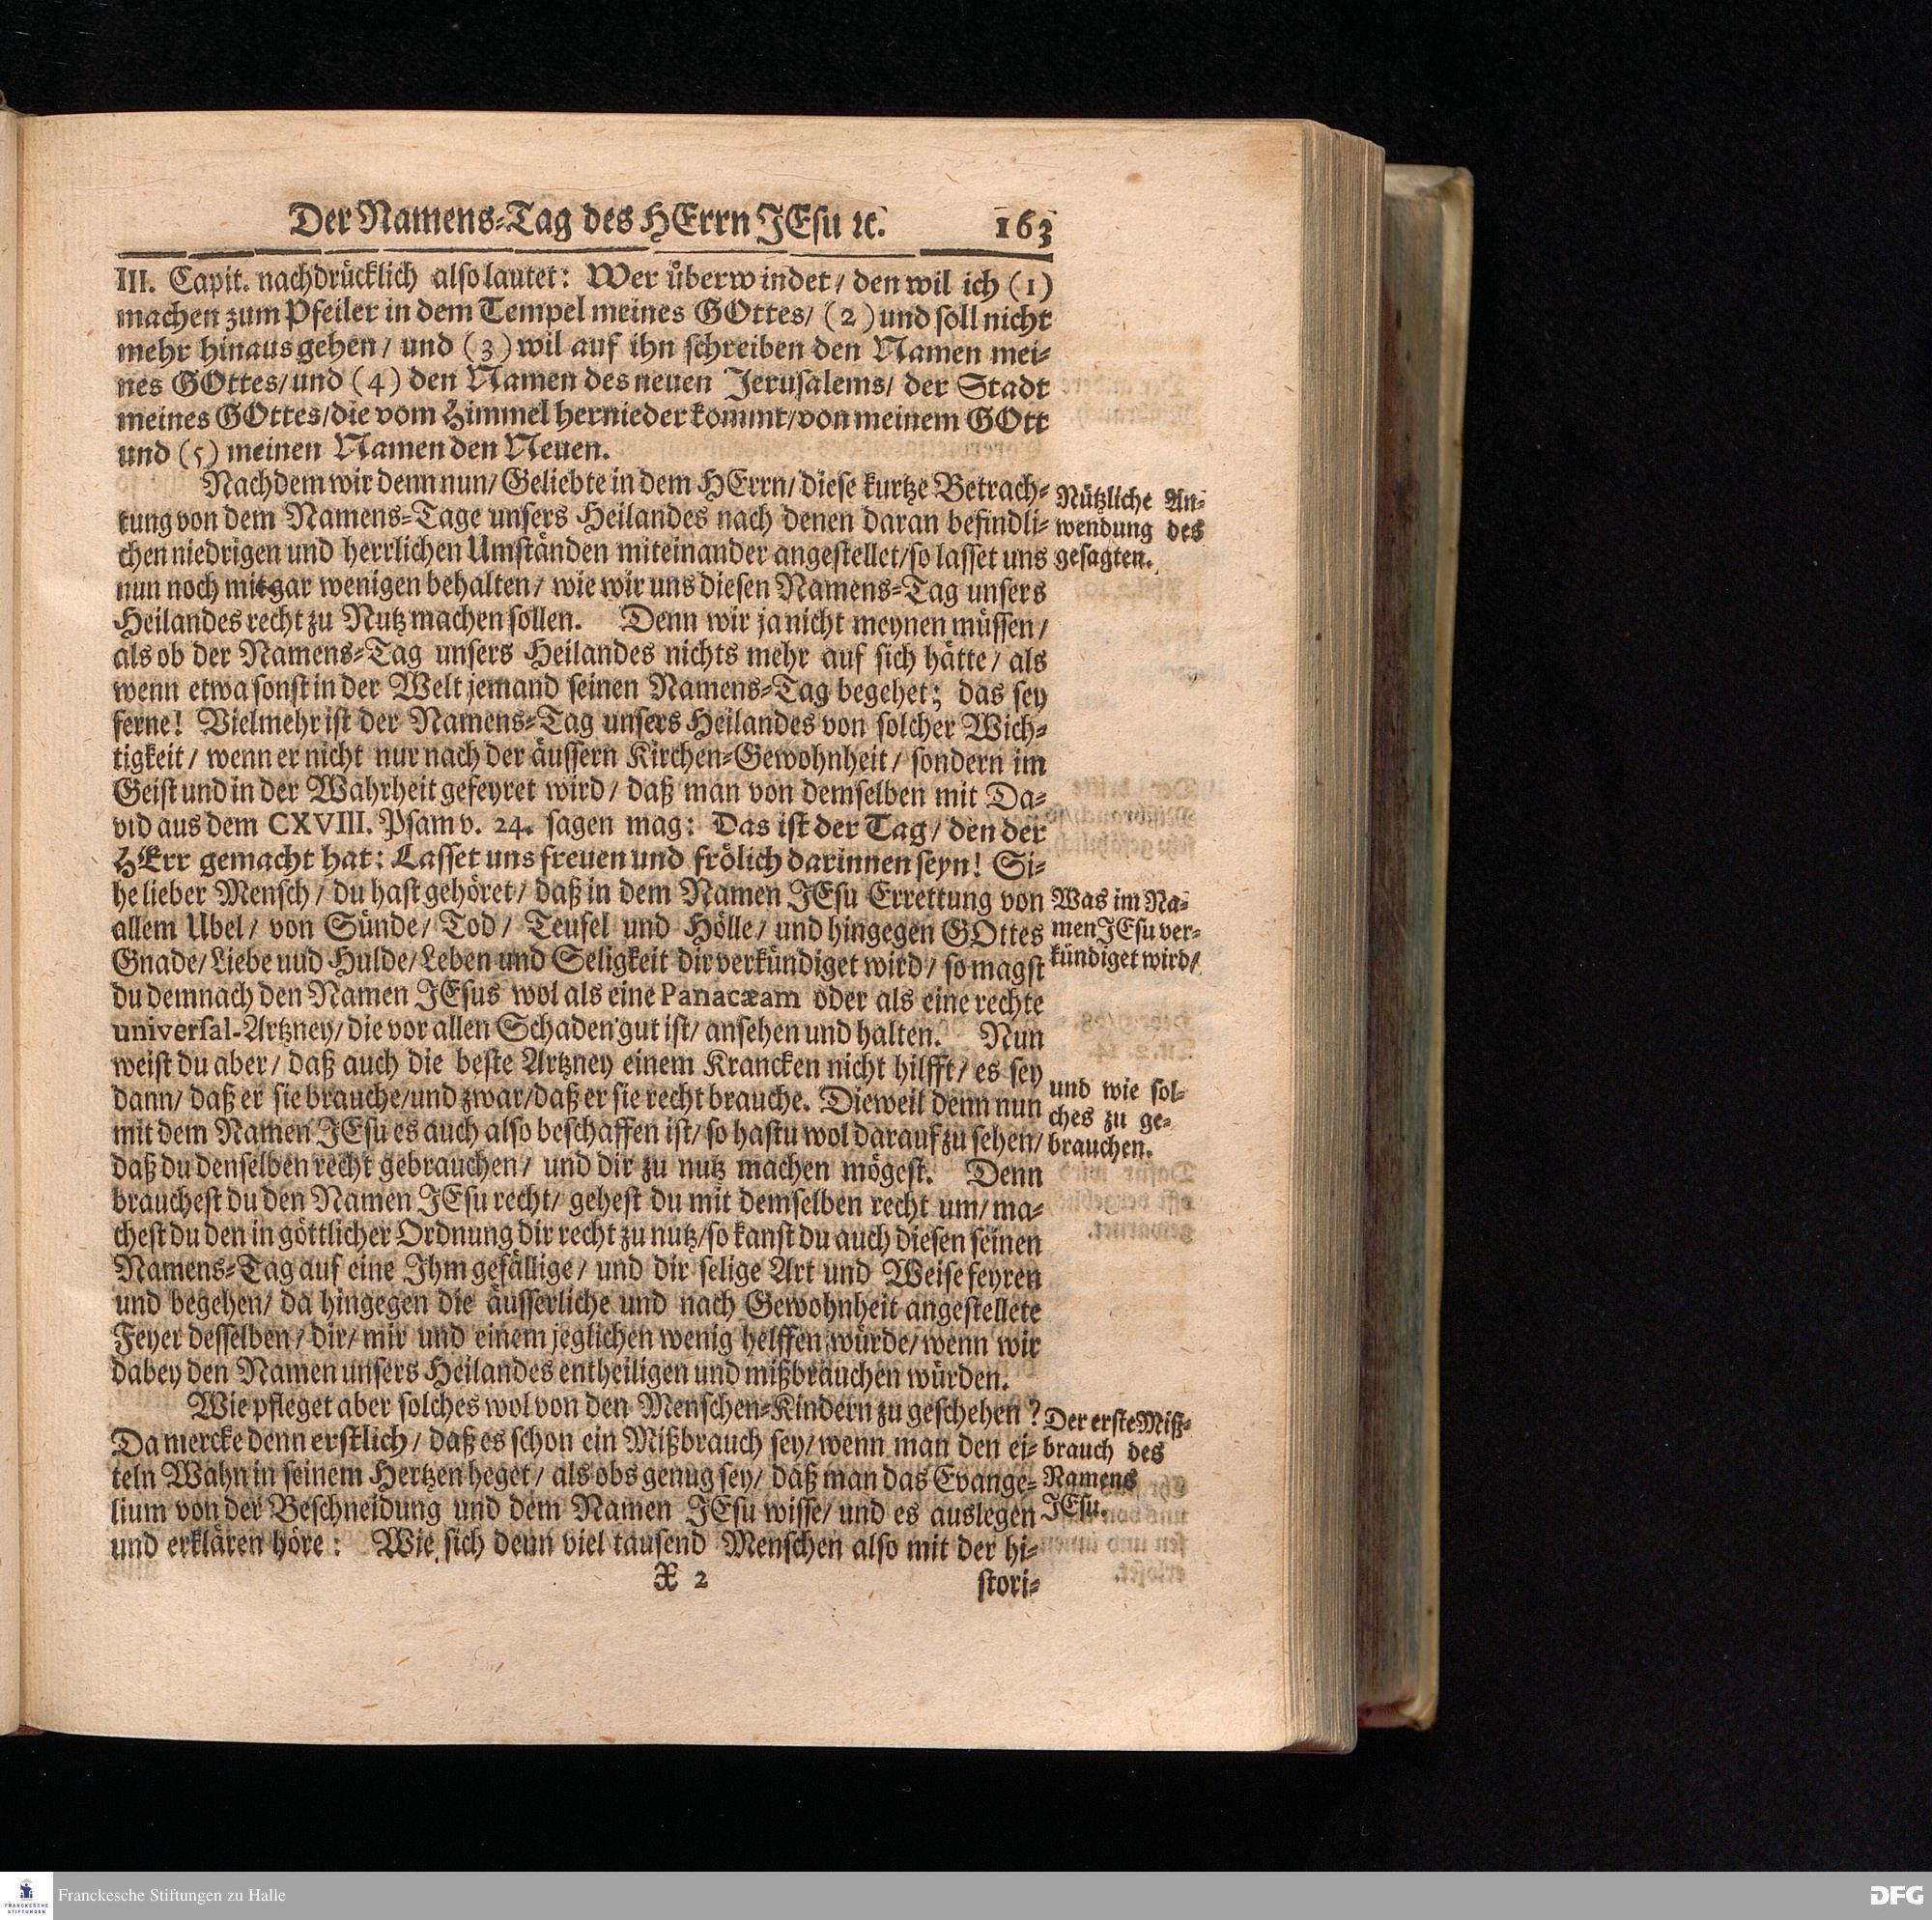 Der Namens-Tag des HErrn JEsu ꝛc. 163
III. Capit. nachdrücklich also lautet: Wer überwindet / den wil ich (1)
machen zum Pfeiler in dem Tempel meines GOttes / (2) und soll nicht
mehr hinaus gehen / und (3) wil auf ihn schreiben den Namen mei-
nes GOttes / und (4) den Namen des neuen Jerusalems / der Stadt
meines GOttes / die vom Himmel hernieder kommt / von meinem GOtt
und (5) meinen Namen den Neuen.
Nachdem wir denn nun / Geliebte in dem HErrn / diese kurtze Betrach-
tung von dem Namens-Tage unsers Heilandes nach denen daran befindli-
chen niedrigen und herrlichen Umständen miteinander angestellet / so lasset uns
Nützliche An-
wendung des
gesagten.
nun noch mit gar wenigen behalten / wie wir uns diesen Namens-Tag unsers
Heilandes recht zu Nutz machen sollen. Denn wir ja nicht meynen müssen /
als ob der Namens-Tag unsers Heilandes nichts mehr auf sich hätte / als
wenn etwa sonst in der Welt jemand seinen Namens-Tag begehet; das sey
ferne! Vielmehr ist der Namens-Tag unsers Heilandes von solcher Wich-
tigkeit / wenn er nicht nur nach der äussern Kirchen-Gewohnheit / sondern im
Geist und in der Wahrheit gefeyret wird / daß man von demselben mit Da-
vid aus dem CXVIII. Psam v. 24. sagen mag: Das ist der Tag / den der
HErr gemacht hat: Lasset uns freuen und frölich darinnen seyn! Si-
he lieber Mensch / du hast gehöret / daß in dem Namen JEsu Errettung von
allem Ubel / von Sünde / Tod / Teufel und Hölle / und hingegen GOttes
Gnade / Liebe uud Hulde / Leben und Seligkeit dir verkündiget wird / so magst
Was im Na-
men JEsu ver-
kündiget wird /
du demnach den Namen JEsus wol als eine Panacæam oder als eine rechte
universal-Artzney / die vor allen Schaden gut ist / ansehen und halten. Nun
weist du aber / daß auch die beste Artzney einem Krancken nicht hilfft / es sey
dann / daß er sie brauche / und zwar / daß er sie recht brauche. Dieweil denn nun
mit dem Namen JEsu es auch also beschaffen ist / so hastu wol darauf zu sehen /
und wie sol-
ches zu ge-
brauchen.
daß du denselben recht gebrauchen / und dir zu nutz machen mögest. Denn
brauchest du den Namen JEsu recht / gehest du mit demselben recht um / ma-
chest du den in göttlicher Ordnung dir recht zu nutz / so kanst du auch diesen seinen
Namens-Tag auf eine Ihm gefällige / und dir selige Art und Weise feyren
und begehen / da hingegen die äusserliche und nach Gewohnheit angestellete
Feyer desselben / dir / mir und einem jeglichen wenig helffen würde / wenn wir
dabey den Namen unsers Heilandes entheiligen und mißbrauchen würden.
Wie pfleget aber solches wol von den Menschen-Kindern zu geschehen?
Da mercke denn erstlich / daß es schon ein Mißbrauch sey / wenn man den ei-
teln Wahn in seinem Hertzen heget / als obs genug sey / daß man das Evange-
lium von der Beschneidung und dem Namen JEsu wisse / und es auslegen
und erklären höre: Wie sich denn viel tausend Menschen also mit der hi-
Der erste Miß-
brauch des
Namens
JEsu.
X 2 stori-
Franckesche Stiftungen zu Halle
FRANCKESCHE
STIFTUNGEN
DFG